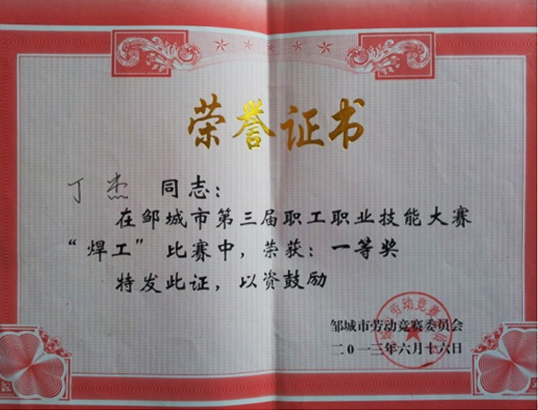 荣誉证书
丁杰 同志：
在邹城市第三届职工职业技能大赛
“焊工”比赛中，荣获：一等奖
特发此证，以资鼓励
邹城市劳动竞赛委员会
二0一三年六月十六日